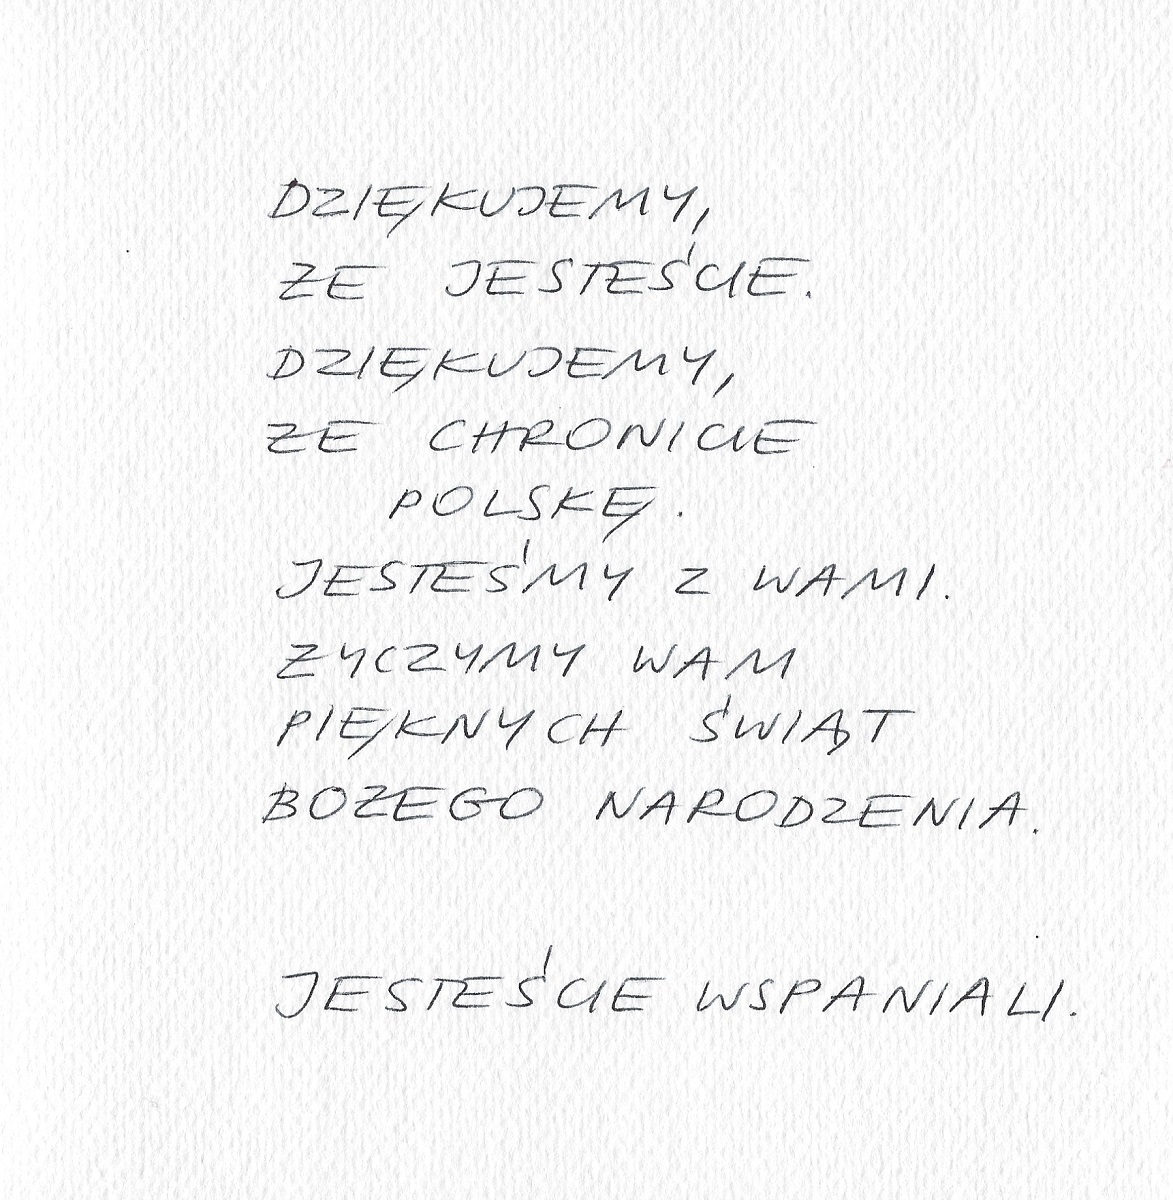 DZIĘKUJEMY,
ŻE JESTEŚCIE.
DZIĘKUJEMY,
ŻE CHRONICIE
POLSKĘ.
JESTEŚMY Z WAMI.
ŻYCZYMY WAM
PIĘKNYCH ŚWIĄT
BOŻEGO NARODZENIA.
JESTEŚCIE WSPANIALI.